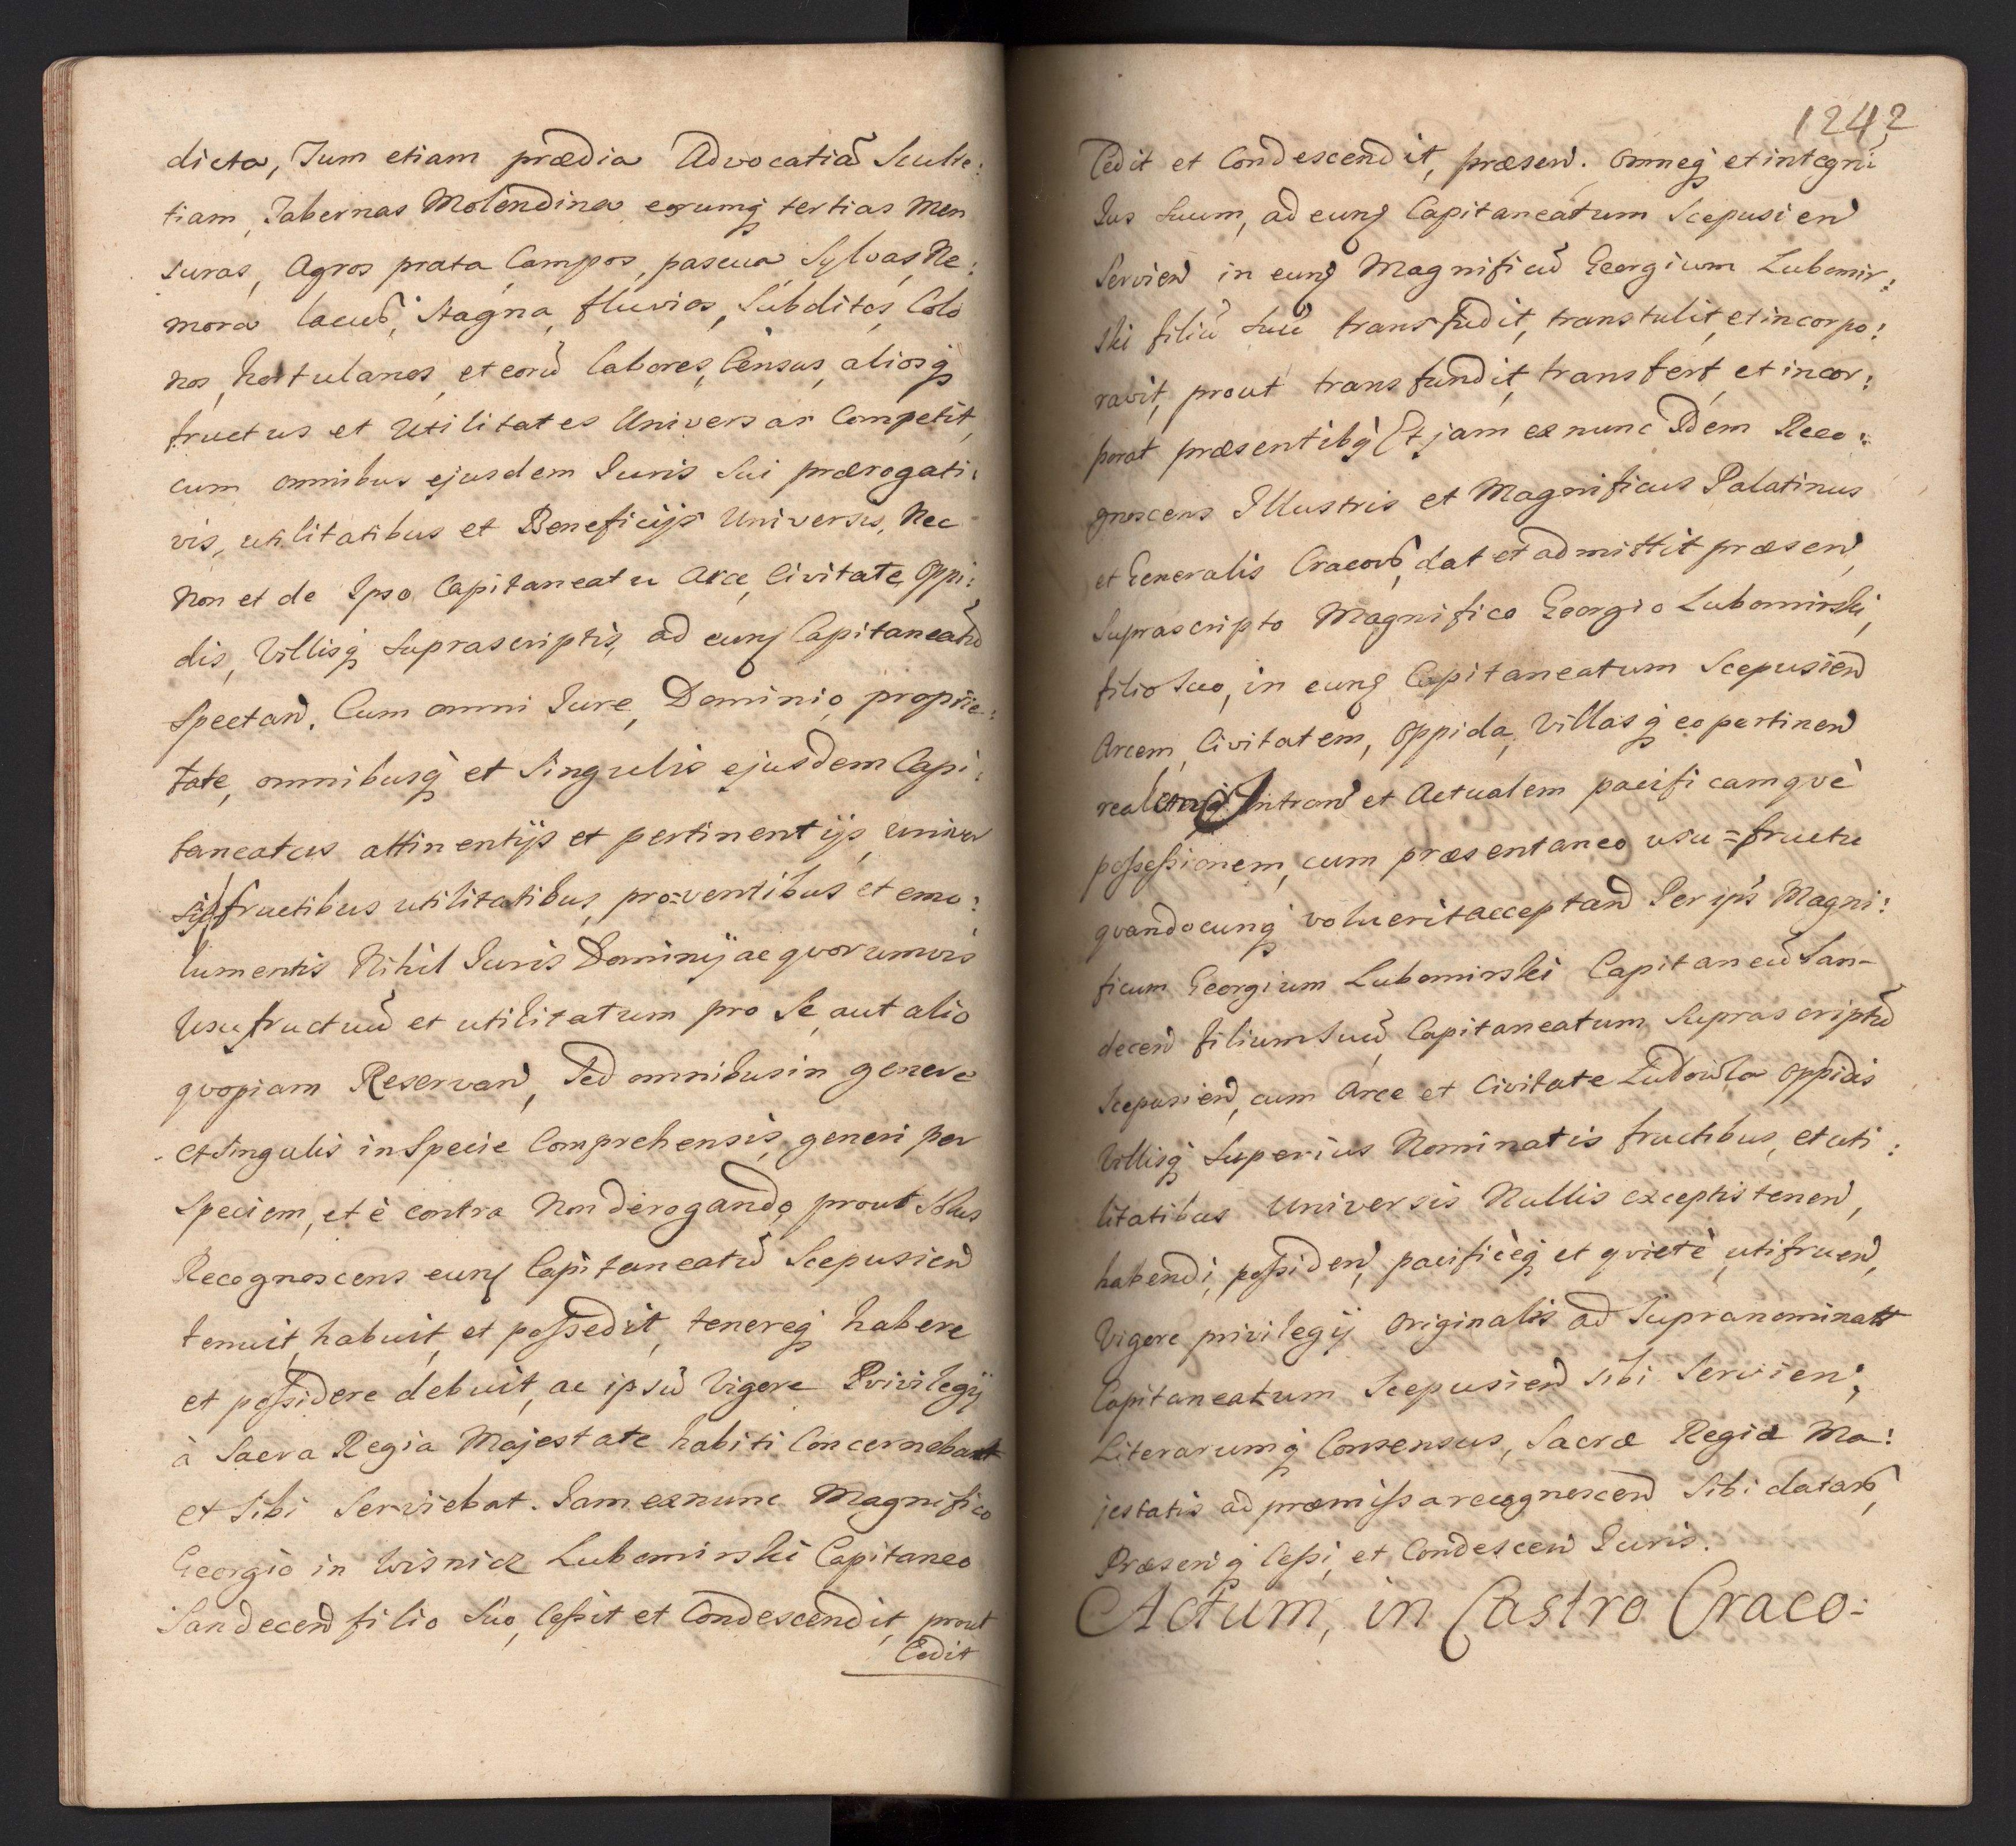 dicta, Tum etiam prædia Advocatiã Sculte:
tiam, Tabernas Molendina eorumq tertias Men
suras, Agros prata Campos, pascua Sylvas, Ne:
mora lacus, Stagna, fluvios, Subditos, Colo
nos, hortulanos, et eorũ labores, Census, aliosq
fructus et Utilitates Universas Competit,
cum omnibus ejusdem Juris Sui prærogati:
vis, utilitatibus et Beneficijs Universis, Nec
Non et de Ipso Capitaneatu Arce, Civitate, Oppi:
dis, Villisq Suprascriptis, ad eung Capitaneatũ
Spectan. Cum omni Jure, Dominio, proprie:
tate, omnibusq et Singulis ejusdem Capi:
taneatus attinentijs et pertinentijs, univer
sis fructibus utilitatibus, pro=ventibus et emo:
lumentis Nihil Juris Dominij ac quorumvis
Usufructuũ et utilitatum pro Se, aut alio
quopiam Reservan, Sed omnibus in genere
et Singulis in Specie Comprehensis, generi per
Speciem, et è contra Non derogando, prout Solus
Recognoscens eung Capitaneatũ Scepusien
tenuit, habuit, et possedit, tenereq habere
et possidere debuit, ac ipsũ Vigore Privilegij
à Sacra Regia Majestate habiti Concernebat
et Sibi Serviebat. Jam exnunc Magnifico
Georgio in Wisnicz Lubomirski Capitaneo
Sandecen filio Suo, Cessit et Condescendit, prout
Cedit
1242
Cedit et Condescendit, præsen. Omneq et integrũ
Jus Suum, ad eung Capitaneatum Scepusien
Servien in eung Magnificũ Georgium Lubomir:
ski filiũ Suũ transfudit, transtulit, et incorpo:
ravit, prout transfundit, transfert, et incor:
porat præsentibq Et jam ex nunc Idem Reco:
gnoscens Illustris et Magnificus Palatinus
et Generalis Cracov, dat et admittit præsen,
Suprascripto Magnifico Georgio Lubomirski,
filio Suo, in eung Capitaneatum Scepusien
Arcem, Civitatem, Oppida, Villasq eo pertinen
realemq Intran et Actualem pacificamquè
possessionem, cum præsentaneo usu=fructu
quandocunq voluerit acceptan Per ips Magni:
ficum Georgium Lubomirski Capitaneũ San-
decen filium Suũ, Capitaneatum Suprascriptũ
Scepusien, cum Arce et Civitate Ludowla Oppidis
Villisq Superius Nominatis fructibus, et uti:
litatibus Universis Nullis exceptis tenen,
habendi, possiden, pacificèq et quietè, utifruen,
Vigore privilegij Originalis ad Supranominatt
Capitaneatum Scepusien Sibi Servien,
Literarumq Consensus, Sacræ Regiæ Ma:
jestatis ad præmissa recognoscen Sibi datar,
Præsenq Cessi, et Condescen Juris.
Actum, in Castro Craco: